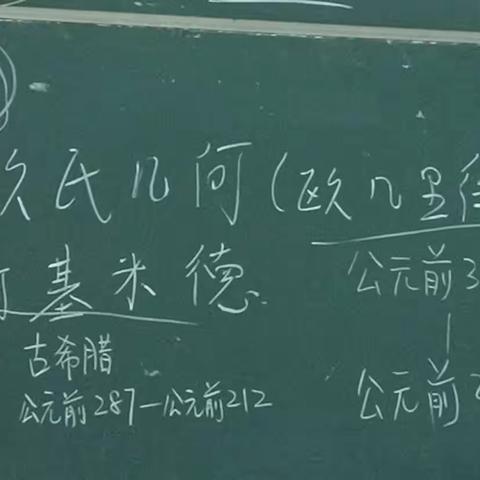 氏几何(欧几里
基米德
公元前3
古希腊
公元前287—公元前212
公元前